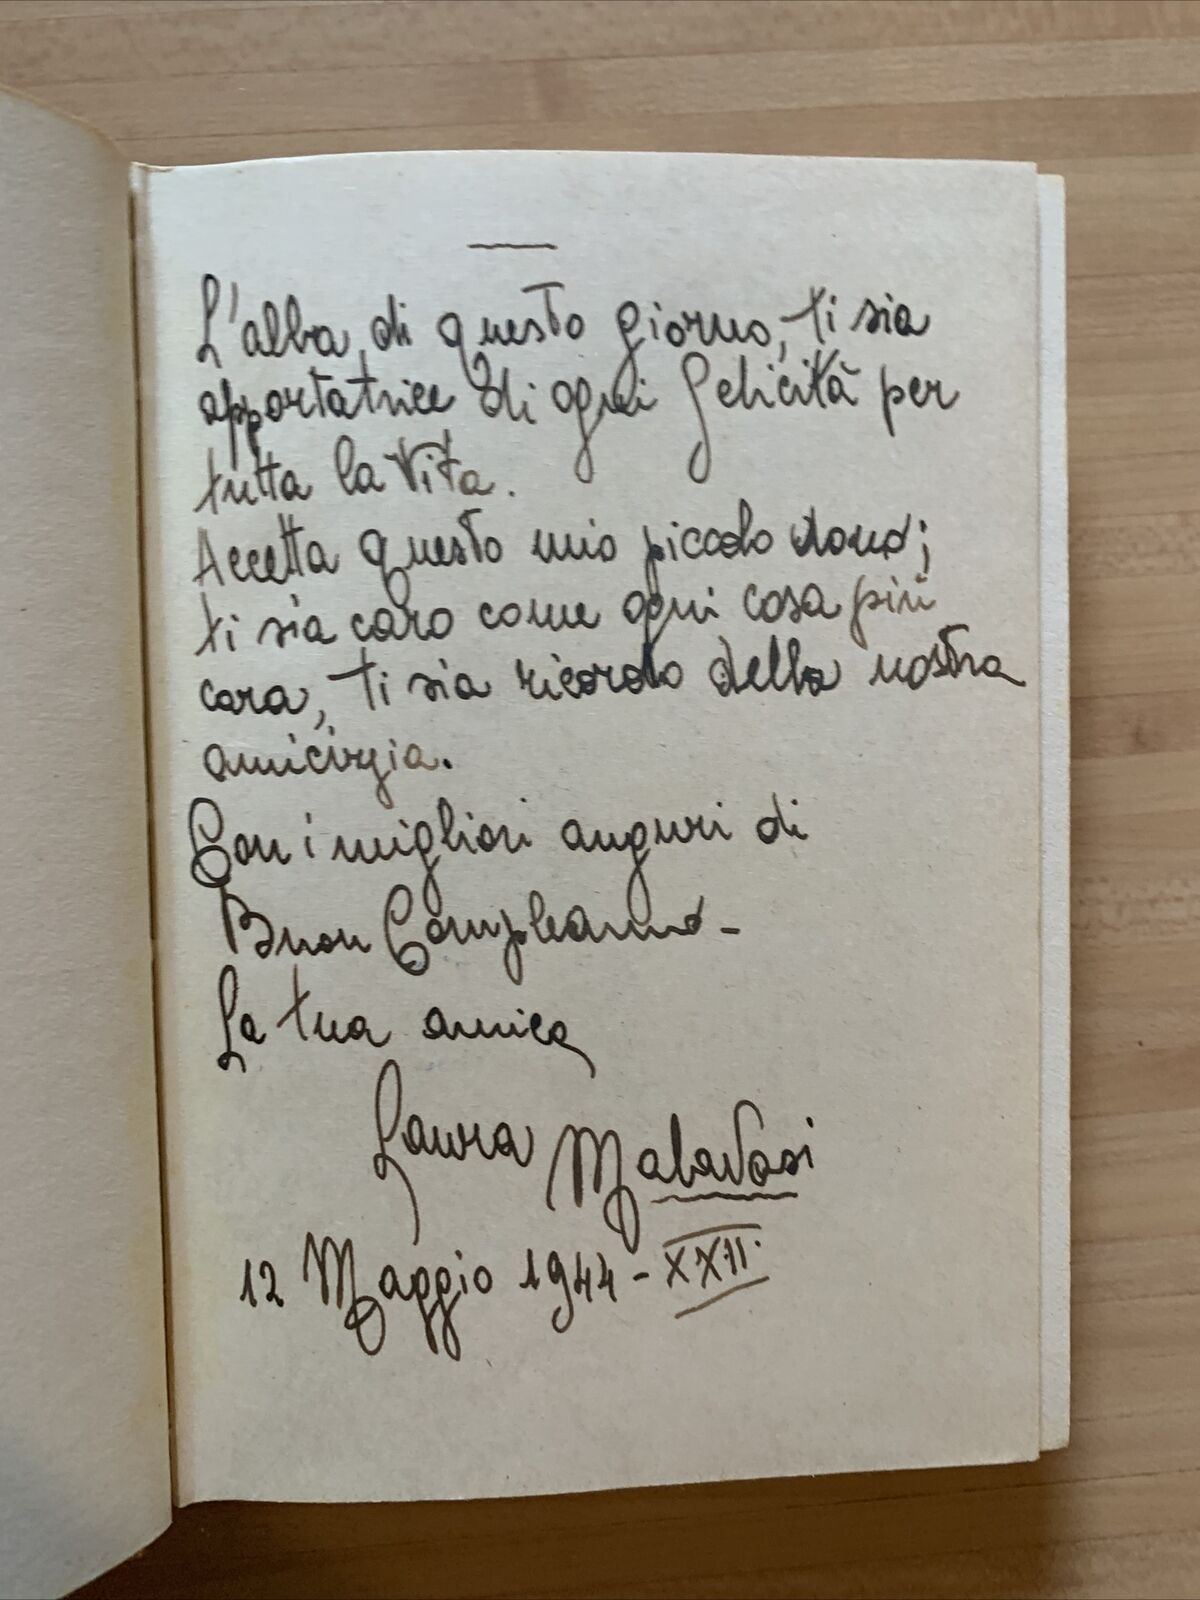 L'alba di questo giorno, ti sia
apportatrice di ogni felicità per
tutta la Vita.
Accetta questo mio piccolo dono;
ti sia caro come ogni cosa più
cara, ti sia ricordo della nostra
amicizia.
Con i migliori auguri di
Buon Compleanno -
La tua amica
Laura Malavasi
12 Maggio 1944 - XXII.